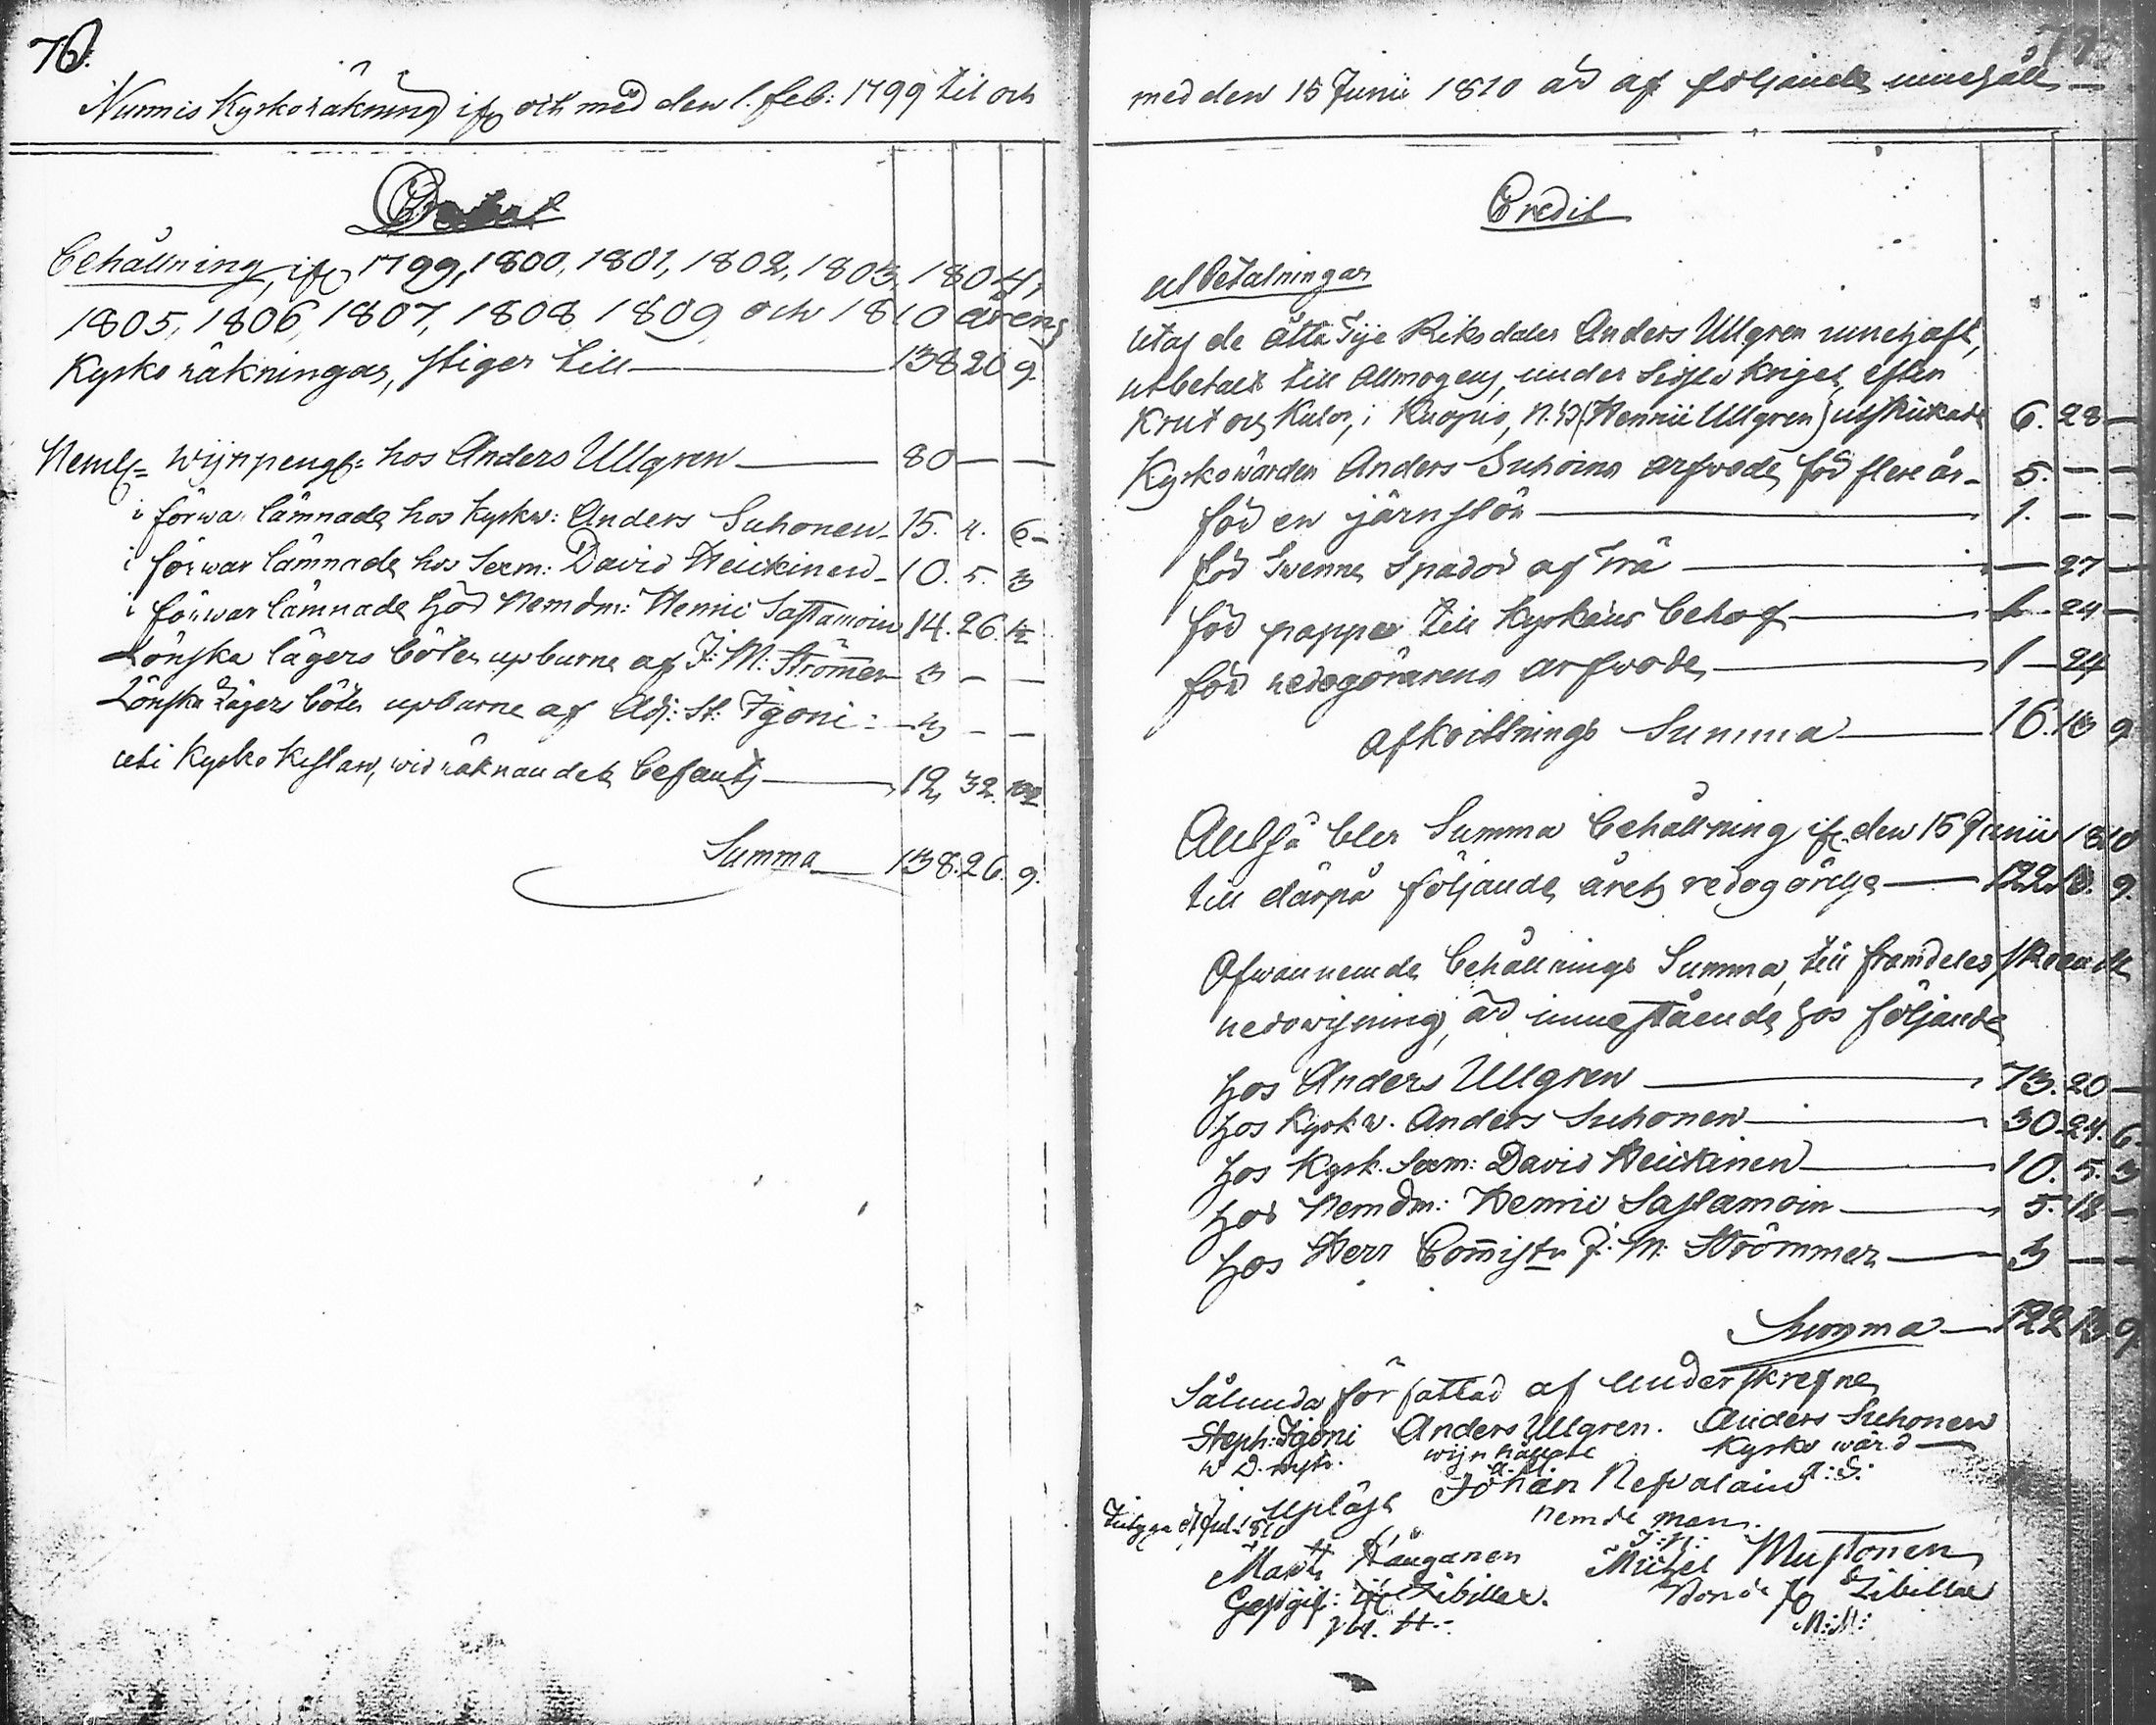 76.
Nurmis Kyrkoräkning ifr. och med den 1. feb: 1799 til och
Debet
Behållning, ifr. 1799, 1800, 1801, 1802, 1803, 1804,
1805, 1806, 1807, 1808 1809 och 1810 årens
Kyrko räkningar, stiger till — 138 20 9.
Neml:= wijnpeng:= hos Anders Ullgren — 80 — —
i förwar lämnade hos Kyrkw: Anders Suhonen — 15. 4. 6 —
i förwar lämnade hos Sexm: David Heickinen — 10. 5. 3
i förwar lämnade hos Nemdm: Henric Sastamoin 14. 26. 12
Lönska lägers böter upburne af J: M: Strömer — 3 — —
Lönska Lägers böter upburne af Adj: St: Igoni : — 3 — —
uti Kyrko Kistan, wid räknandet befants — 12, 32.
Summa — 138. 26. 9.
med den 15 Junii 1810 är af följande innehåll —
Credit
utbetalningar
utaf de åttatije Riksdaler Anders Ullgren innehaft,
utbetalt till Allmogens, under sidsta kriget, efter
Krut och Kulor, i Kuopio, (Henric Ullgren) utskickade 6. 28 —
Kyrkowärden Anders Suhoins arfvode för flere år — 5. — —
för en järnslöa — 1. — —
för twenne spador af Trä — — 27 —
för papper till Kyrkans behof — 1 — 24 —
för redogörarens arfvode — 1 — 24
afkortnings Summa — 16. 13 9
Altså bler Summa behållning ifr. den 15 Junii 1810
till därpå följande årets redogörelse — 122. 13. 9.
Ofwannemde behållnings Summa, till framdeles skeende
redowisning, är innestående hos följande
hos Anders Ullgren — 73. 20 —
hos Kyrkw. Anders Suhonen — 30. 24. 6
hos Kyrk. Sexm: David Heickinen — 10. 5. 3
hos Nemdm: Henric Sastamoin — 5. 12 —
hos Herr J: M: Strömmer — 3 — —
Summa — 122 13 9
Sålunda författad af underskrefne
Steph: Igoni Anders Ullgren. Anders Suhonen
Kyrko wärd —
A: S:
Johan Nefvalain
Nemde man.
J: N:
Upläst
Michel Mustonen
M: M: